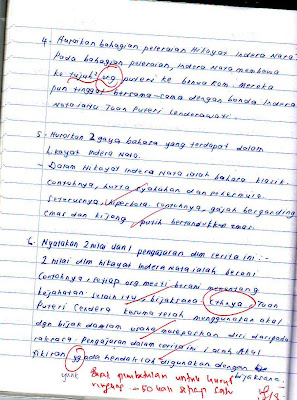 4. Huraikan bahagian peleraian Hikayat Indera Nata?
Pada bahagian peleraian, Indera Nata membawa
ke tujuh² org puteri ke benua Rom. Mereka
pun tinggal bersama-sama dengan bonda Indera
Nata iaitu Tuan Puteri Cenderawati.
5. Huraikan 2 gaya bahasa yang terdapat dalam
Hikayat Indera Nata.
- Dalam Hikayat Indera Nata ialah bahasa klasik.
Contohnya, hatta, syahadan dan
Seterusnya, hiperbola. contohnya, gajah bergading
emas dan kijang putih bertanduk emas.
6. Nyatakan 2 nilai dan 1 pengajaran dlm cerita ini :-
2 nilai dlm hikayat Indera Nata ialah berani
Contohnya, setiap org mesti berani menentang
kejahatan. selain itu, bijaksana. Cthnya Tuan
Puteri Cendera Kesuma Serah menggunakan akal
dgn bijak dalam usaha melepaskan diri daripada
raksasa. Pengajaran dalam cerita ini ialah Akal
fikiran yg pada hendaklah digunakan dengan bijaksana.
yang Buat pembetulan untuk huruf
ringkas - 50 kali setiap satu